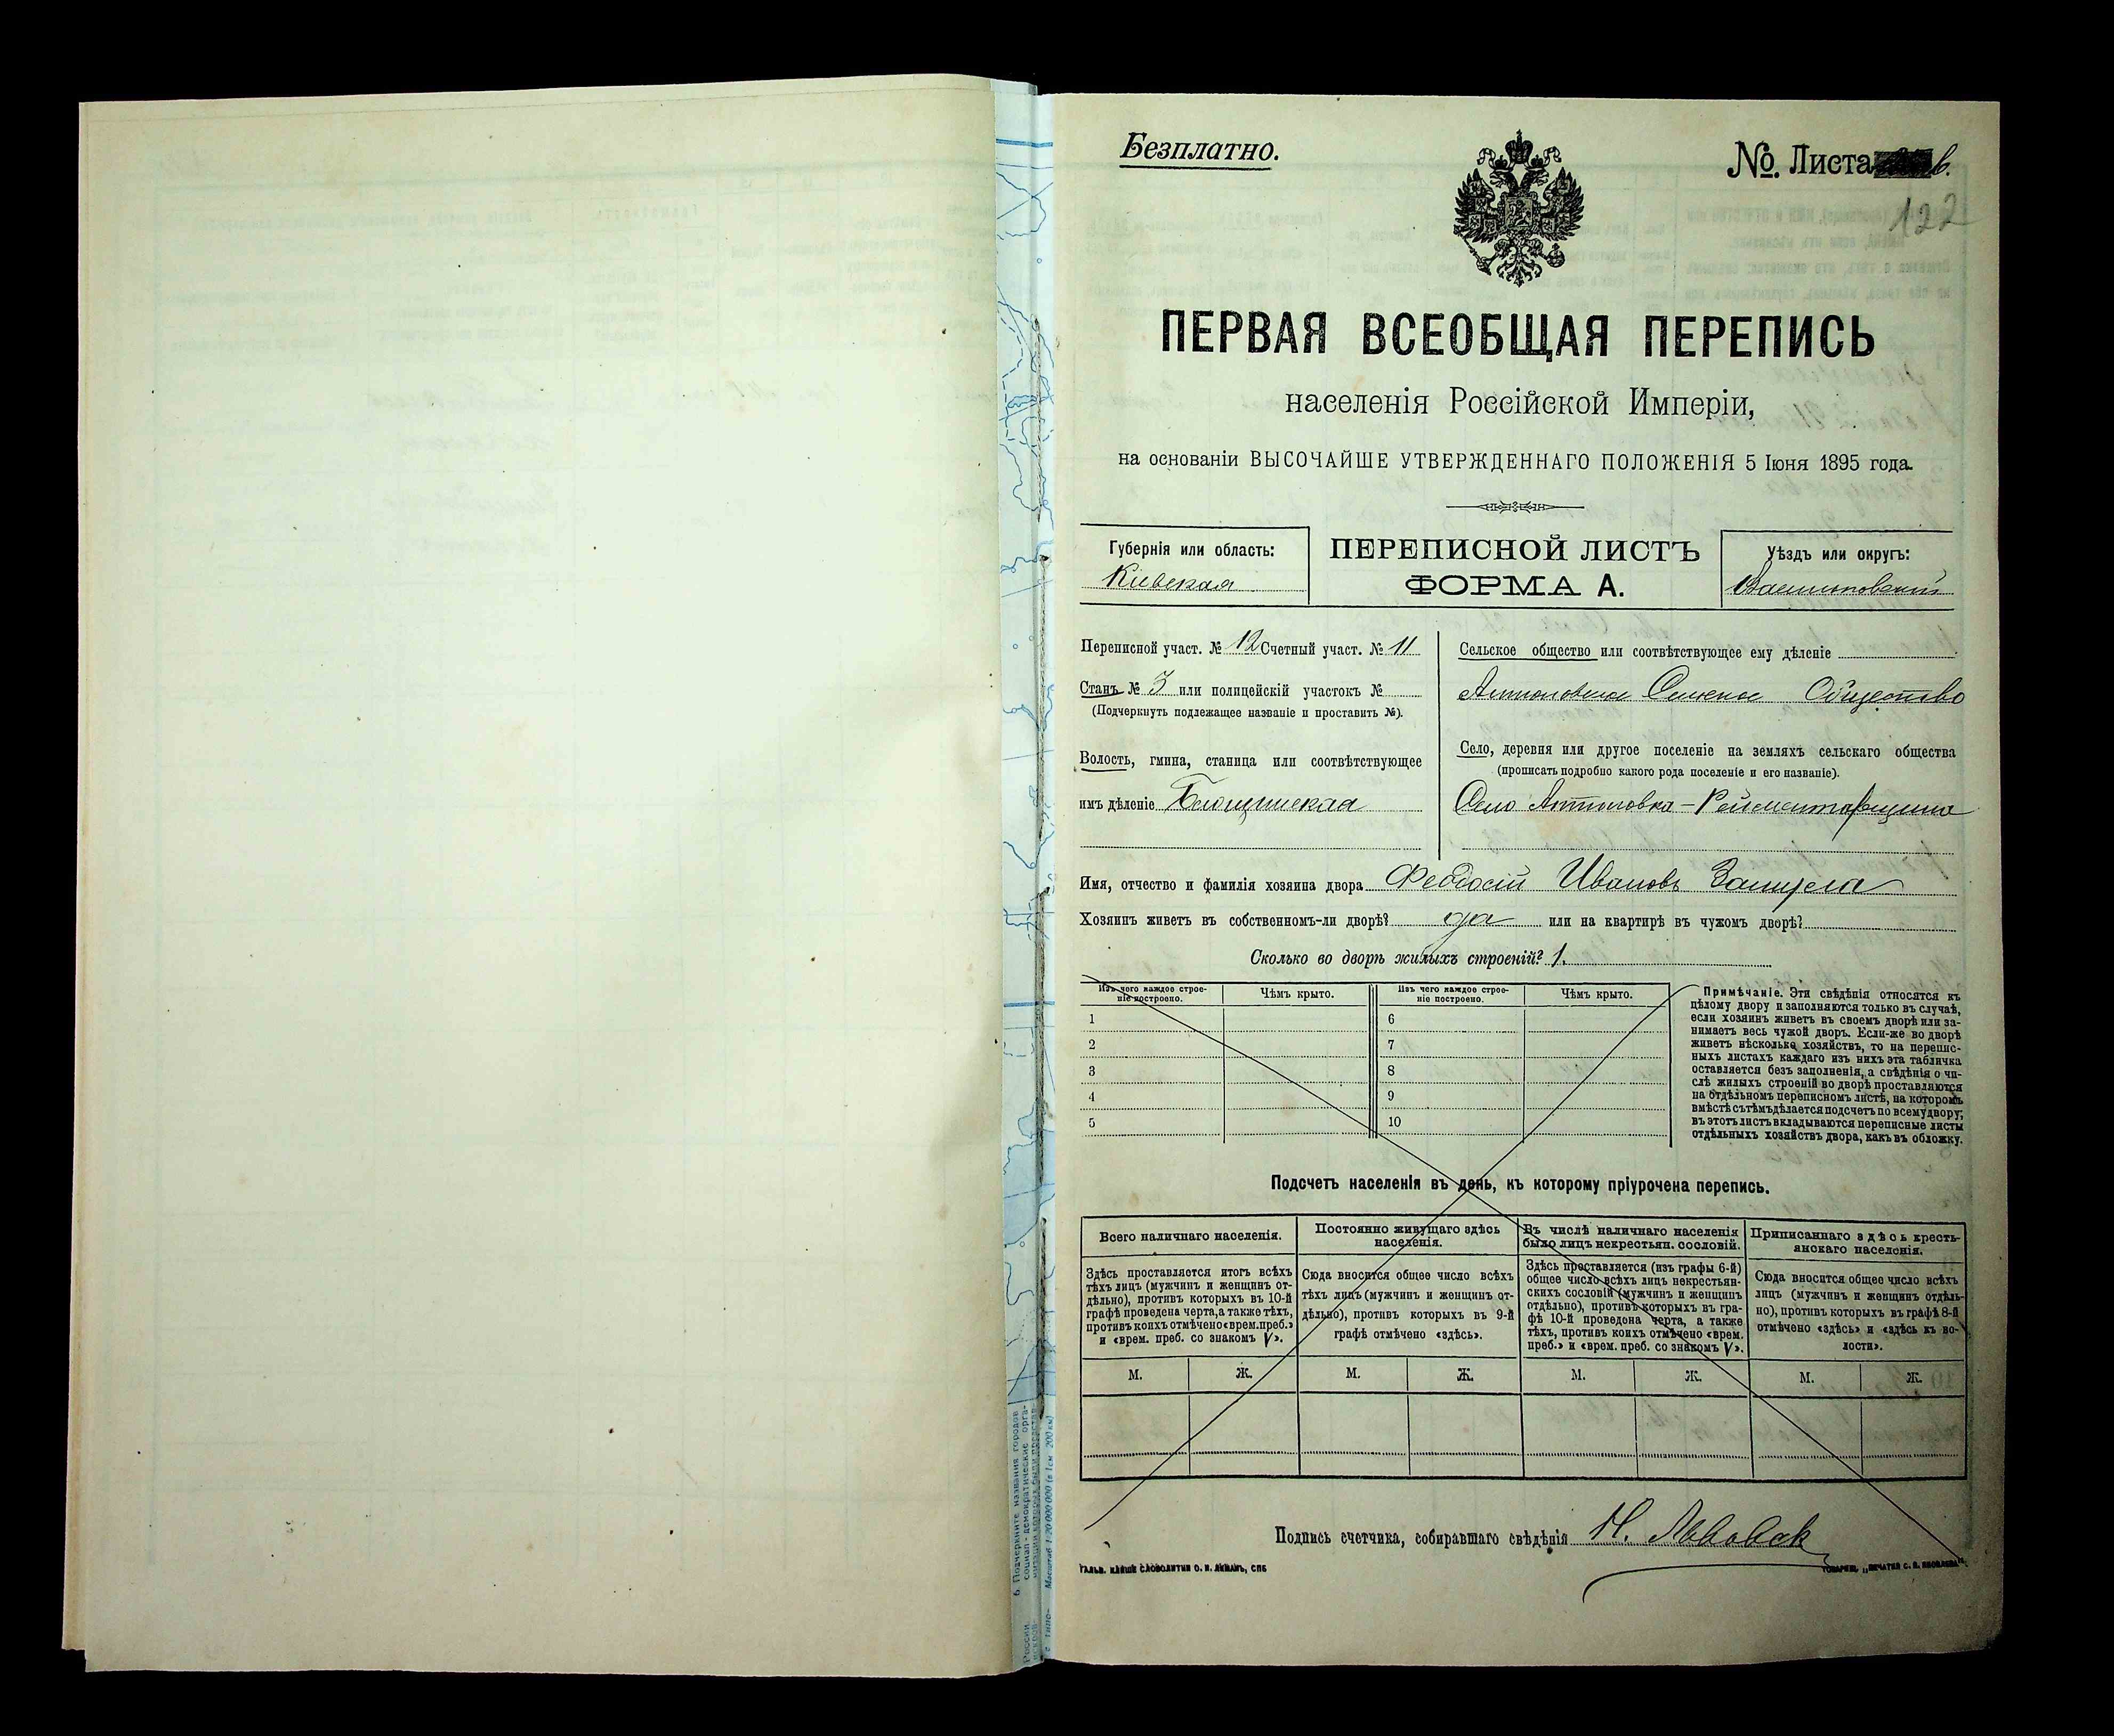 Безплатно.
№. Листа
122
ПЕРВАЯ ВСЕОБЩАЯ ПЕРЕПИСЬ
населенія Россійской Имперіи,
на основаніи ВЫСОЧАЙШЕ УТВЕРЖДЕННАГО ПОЛОЖЕНІЯ 5 Іюня 1895 года.
Губернія или область:
Кіевская
ПЕРЕПИСНОЙ ЛИСТЪ
ФОРМА А.
Уѣздъ или округъ:
Васильковскій
Переписной участ. № 12 Счетный участ. № 11
Станъ № 3 или полицейскій участокъ №
(Подчеркнуть подлежащее названіе и проставить №).
Волость, гмина, станица или соотвѣтствующее
имъ дѣленіе
Сельское общество или соотвѣтствующее ему дѣленіе
Общество
Село, деревня или другое поселеніе на земляхъ сельскаго общества
(прописать подробно какого рода поселеніе и его названіе).
Село Антоновка-
Имя, отчество и фамилія хозяина двора Феодосій Ивановъ
Хозяинъ живетъ въ собственномъ-ли дворѣ? да или на квартирѣ въ чужомъ дворѣ?
Сколько во дворѣ жилыхъ строеній? 1.
Изъ чего каждое строеніе построено.
Чѣмъ крыто.
Изъ чего каждое строеніе построено.
Чѣмъ крыто.
1
2
3
4
5
6
7
8
9
10
Примѣчаніе. Эти свѣдѣнія относятся къ
цѣлому двору и заполняются только въ случаѣ,
если хозяинъ живетъ въ своемъ дворѣ или за-
нимаетъ весь чужой дворъ. Если-же во дворѣ
живетъ нѣсколько хозяйствъ, то на перепис-
ныхъ листахъ каждаго изъ нихъ эта табличка
оставляется безъ заполненія, а свѣдѣнія о чи-
слѣ жилыхъ строеній во дворѣ проставляются
на отдѣльномъ переписномъ листѣ, на которомъ
вмѣстѣ съ тѣмъ дѣлается подсчетъ по всему двору;
въ этотъ листъ вкладываются переписные листы
отдѣльныхъ хозяйствъ двора, какъ въ обложку.
Подсчетъ населенія въ день, къ которому пріурочена перепись.
Всего наличнаго населенія.
Здѣсь проставляется итогъ всѣхъ
тѣхъ лицъ (мужчинъ и женщинъ от-
дѣльно), противъ которыхъ въ 10-й
графѣ проведена черта, а также тѣхъ,
противъ коихъ отмѣчено «врем. преб.»
и «врем. преб. со знакомъ V».
Постоянно живущаго здѣсь
населенія.
Сюда вносится общее число всѣхъ
тѣхъ лицъ (мужчинъ и женщинъ от-
дѣльно), противъ которыхъ въ 9-й
графѣ отмѣчено «здѣсь».
Въ числѣ наличнаго населенія
было лицъ некрестьян. сословій.
Здѣсь проставляется (изъ графы 6-й)
общее число всѣхъ лицъ некрестьян-
скихъ сословій (мужчинъ и женщинъ
отдѣльно), противъ которыхъ въ гра-
фѣ 10-й проведена черта, а также
тѣхъ, противъ коихъ отмѣчено «врем.
преб.» и «врем. преб. со знакомъ V».
Приписаннаго здѣсь кресть-
янскаго населенія.
Сюда вносится общее число всѣхъ
лицъ (мужчинъ и женщинъ отдѣль-
но), противъ которыхъ въ графѣ 8-й
отмѣчено «здѣсь» и «здѣсь къ во-
лости».
М. Ж. М. Ж. М. Ж. М. Ж.
Подпись счетчика, собиравшаго свѣдѣнія Н.
6. Подчеркните названия городов
социал-демократические орга-
Масштаб 1:20 000 000 (в 1 см 200 км)
России